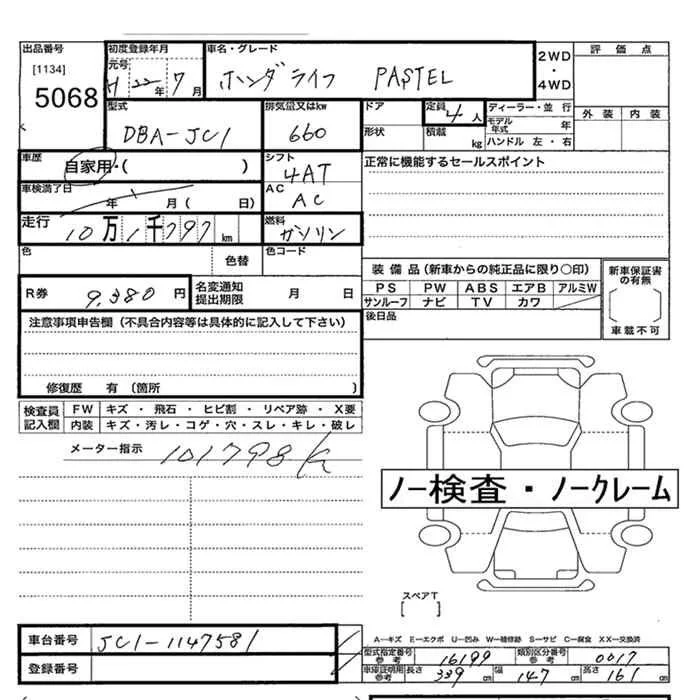 出品番号 初度登録年月 車名・グレード 2WD・4WD 評価点
[1134] 元号 H 22年 7月 ホンダライフ PASTEL
5068
型式 排気量又はkw ドア 定員 4人 ディーラー・並 行 外装 内装
DBA-JC1 660 形状 積載 kg モデル年式 年
ハンドル 左・右
車歴 自家用・( ) シフト 4AT 正常に機能するセールスポイント
車検満了日 年 月( 日) AC AC
走行 10万1千797km 燃料 ガソリン
色 色替 色コード
装備品(新車からの純正品に限り○印) 新車保証書の有無
R券 9,380円 名変通知提出期限 月 日 PS PW ABS エアB アルミW
サンルーフ ナビ TV カワ
後日品 車載不可
注意事項申告欄(不具合内容等は具体的に記入して下さい)
修復歴 有(箇所 )
検査員記入欄 FW キズ・飛石・ヒビ割・リペア跡・X要
内装 キズ・汚レ・コゲ・穴・スレ・キレ・破レ
メーター指示 101798K
ノー検査・ノークレーム
スペアT
[ ]
車台番号 JC1-1147581
登録番号
A—キズ E—エクボ U—凹み W—補修跡 S—サビ C—腐食 XX—交換済
型式指定番号参考 16199 類別区分番号参考 0017
車庫証明用参考 長さ 339cm 幅 147cm 高さ 161cm